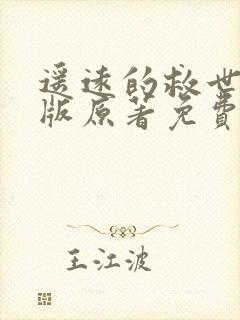 遥远的救世
版原著免費
王江波